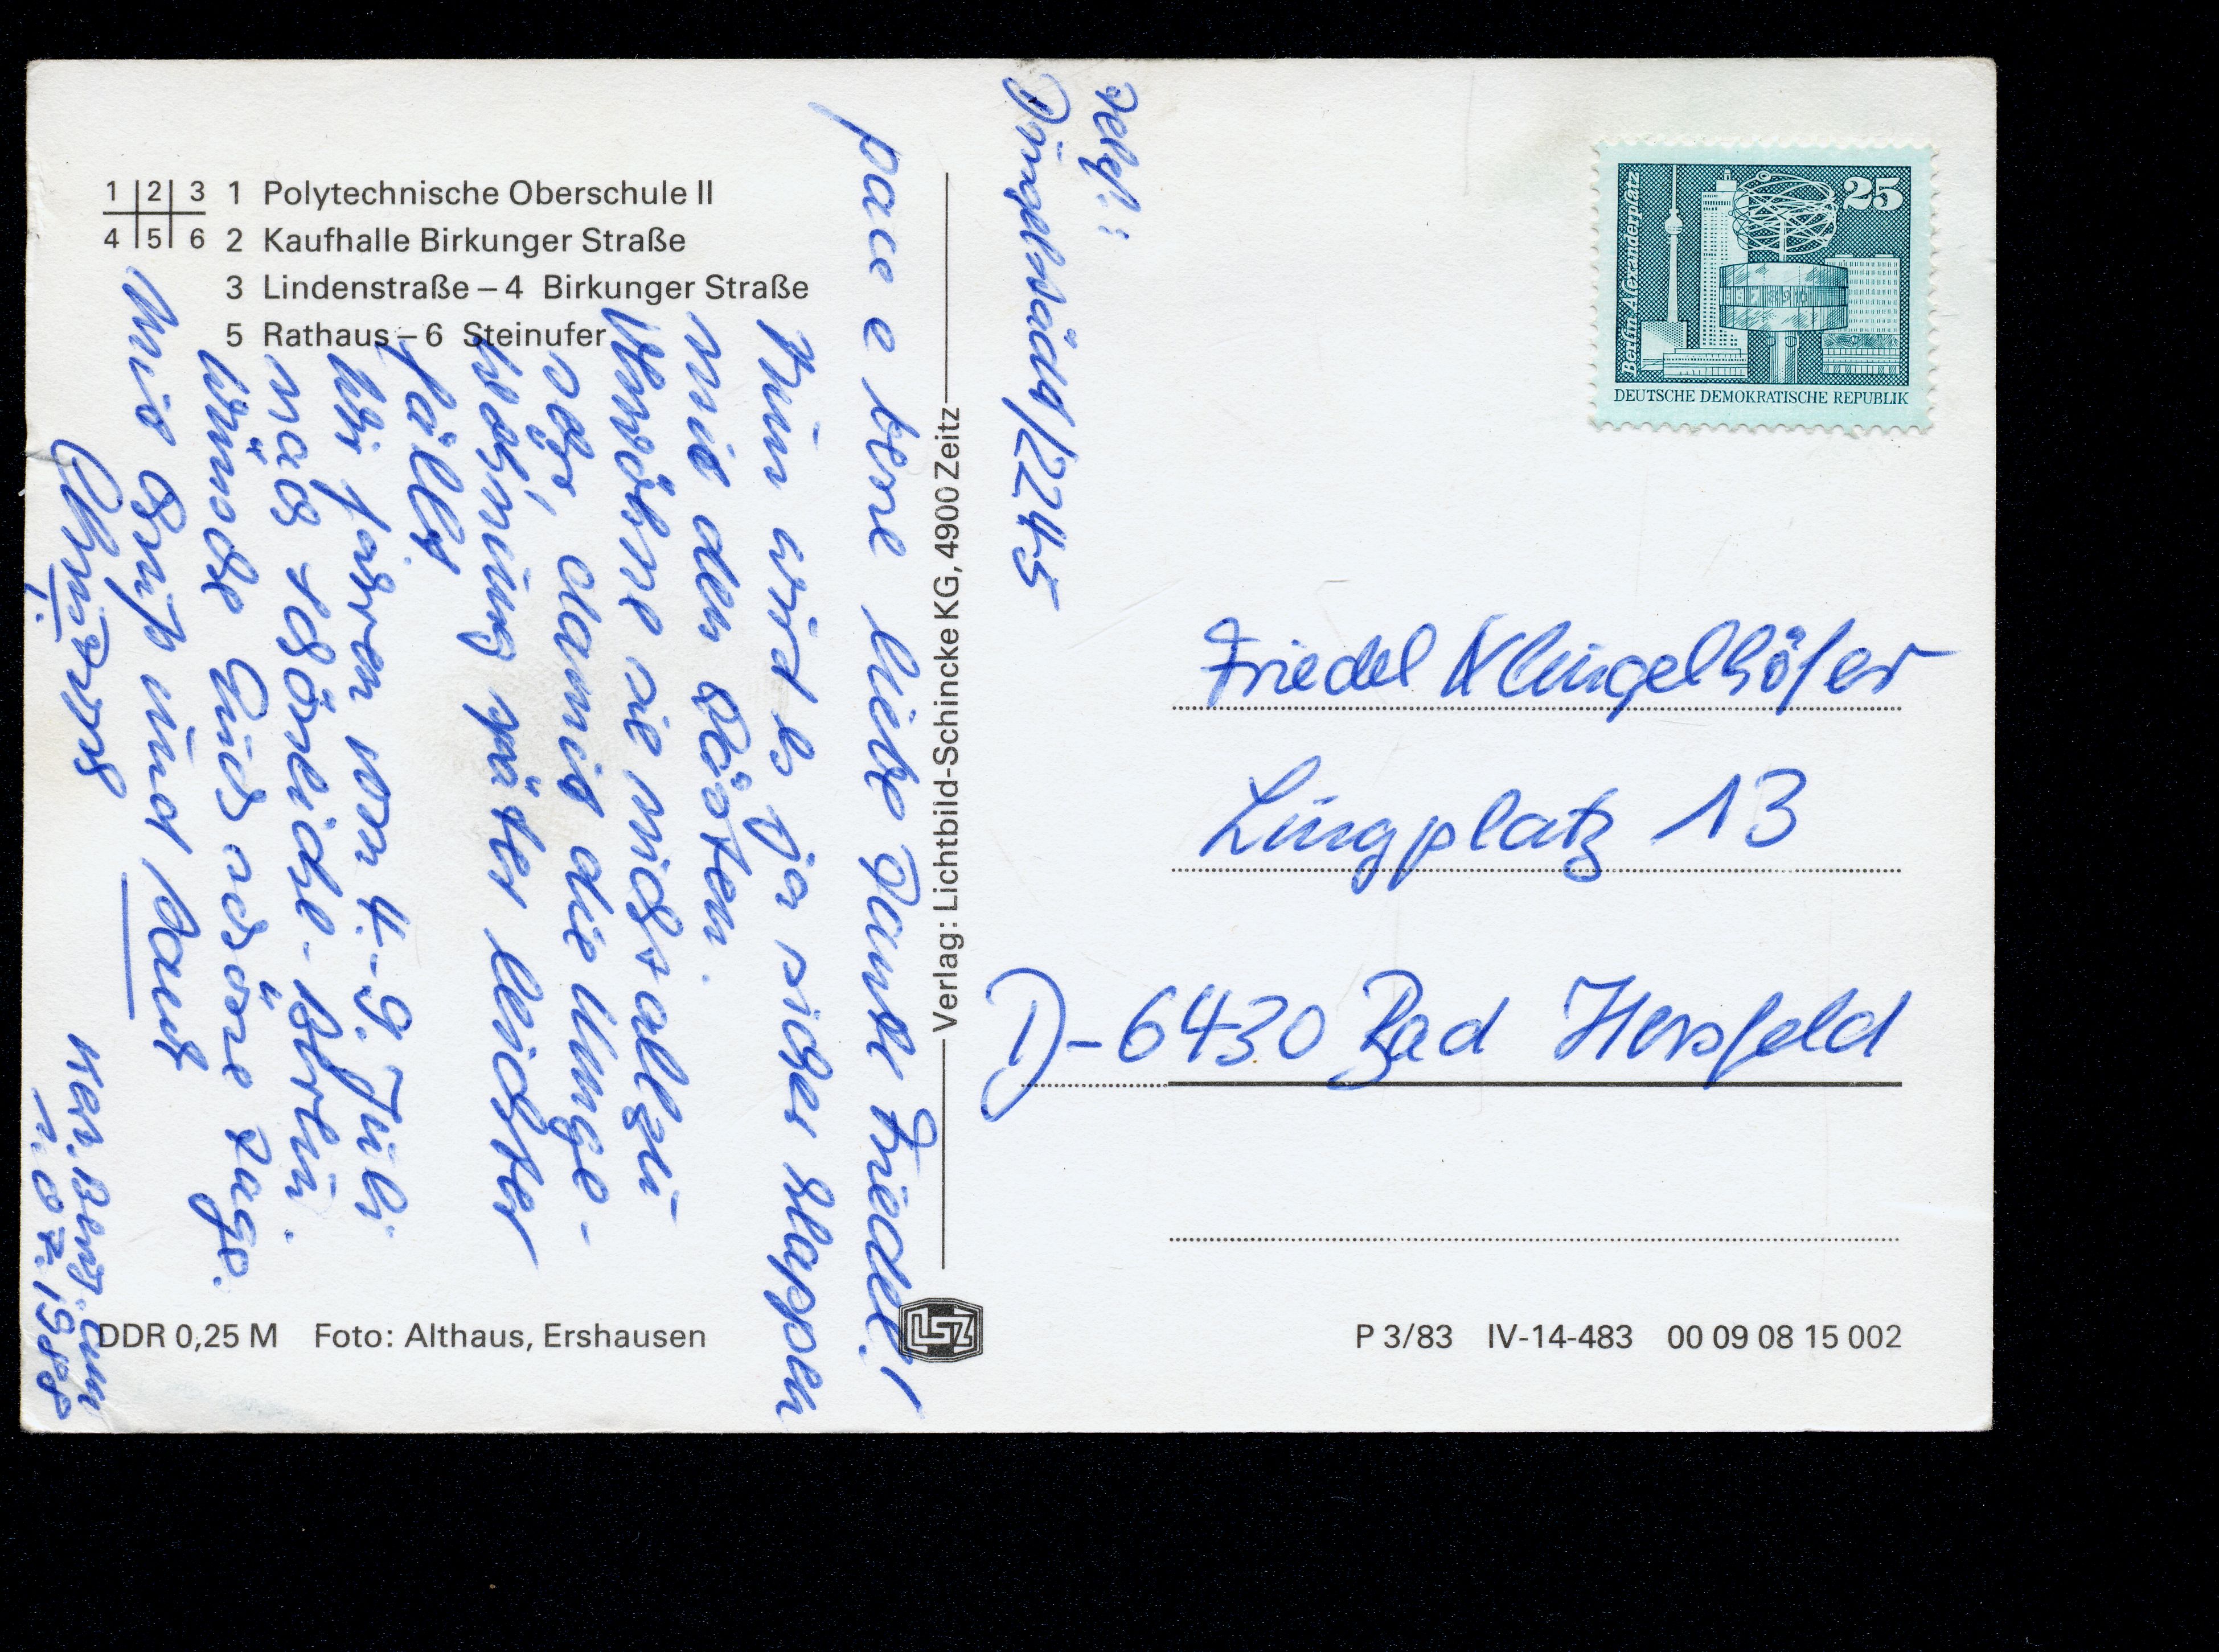 1 2 3
4 5 6
1 Polytechnische Oberschule II
2 Kaufhalle Birkunger Straße
3 Lindenstraße – 4 Birkunger Straße
5 Rathaus – 6 Steinufer
pace e bene liebe Tante Friedel!
Nun wird es ja sicher klappen
mit den
Verwöhne sie nicht allzu-
sehr, damit die Umge-
wöhnung später leichter
fällt
Wir fahren vom 4.-9. Juli
nach
Wünsche Euch schöne Tage.
mit Gruß und Dank
1.07.1988
Verlag: Lichtbild-Schincke KG, 4900 Zeitz
LSZ
DDR 0,25 M Foto: Althaus, Ershausen
Telef.:
Dingelstädt/2245
Berlin Alexanderplatz
25
DEUTSCHE DEMOKRATISCHE REPUBLIK
Friedel Klingelhöfer
Lingplatz 13
D-6430 Bad Hersfeld
P 3/83 IV-14-483 00 09 08 15 002